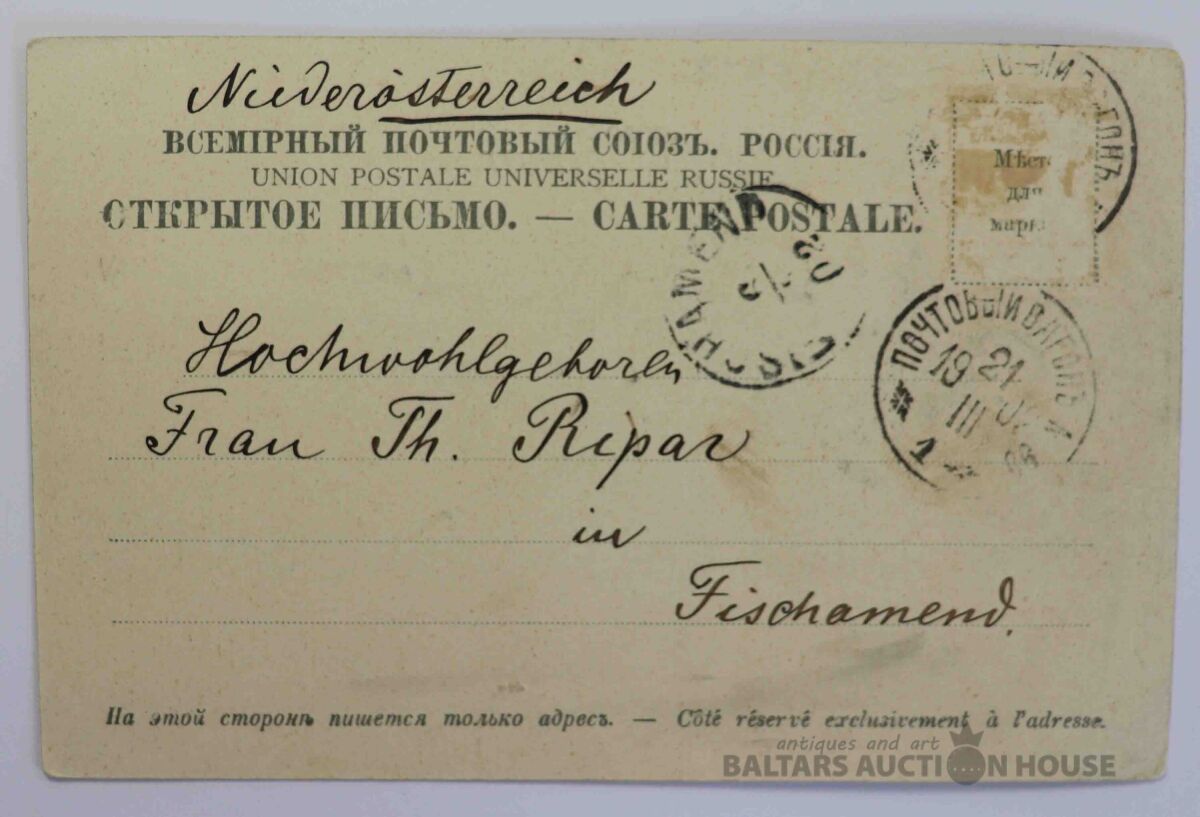 Niederösterreich
ВСЕМІРНЫЙ ПОЧТОВЫЙ СОЮЗЪ. РОССІЯ.
UNION POSTALE UNIVERSELLE RUSSIE
ОТКРЫТОЕ ПИСЬМО. — CARTE POSTALE.
Мѣсто
для
марки
FISCHAMEND
ПОЧТОВЫЙ ВАГОНЪ
19 21
III
1
Hochwohlgeboren
Frau Th. Ripar
in
Fischamend.
На этой сторонѣ пишется только адресъ. — Côté réservé exclusivement à l'adresse.
antiques and art
BALTARS AUCTION HOUSE